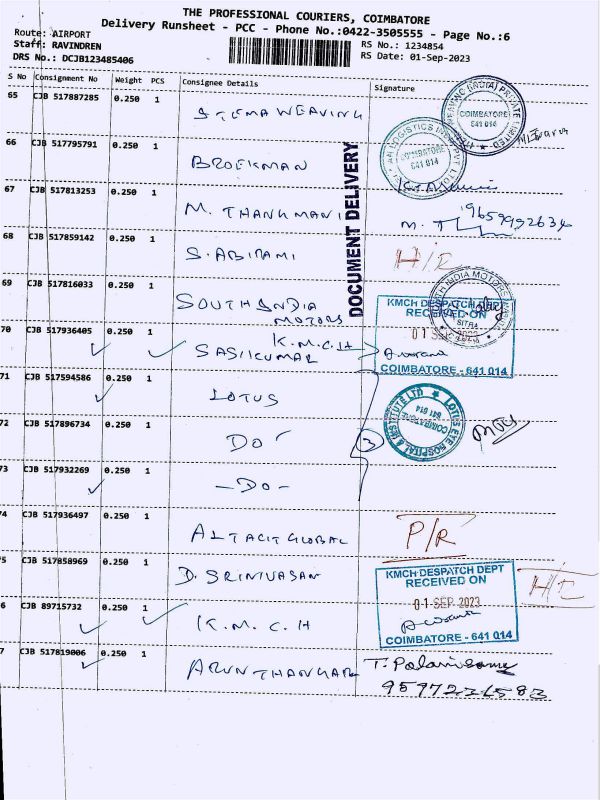 THE PROFESSIONAL COURIERS, COIMBATORE
Delivery Runsheet - PCC - Phone No.:0422-3505555 - Page No.:6
Route: AIRPORT
Staff: RAVINDREN
DRS No.: DCJB123485406
RS No.: 1234854
RS Date: 01-Sep-2023
S No Consignment No Weight PCS Consignee Details Signature
65 CJB 517887285 0.250 1
WEAVING
COIMBATORE 641 014
66 CJB 517795791 0.250 1 BROEKMAN
COIMBATORE 641 014
DOCUMENT DELIVERY
67 CJB 517813253 0.250 1 M. THANGMANI
9659992634
68 CJB 517859142 0.250 1 S. ABIRAMI
69 CJB 517816033 0.250 1 SOUTH INDIA MOTORS
KMCH DESPATCH DEPT
RECEIVED ON
COIMBATORE - 641 014
70 CJB 517936405 0.250 1 K.M.C.H SASIKUMAR
71 CJB 517594586 0.250 1 LOTUS
LOTUS EYE HOSPITAL & INSTITUTE LTD
COIMBATORE 641 014
72 CJB 517896734 0.250 1 DO
3
73 CJB 517932269 0.250 1 -DO-
74 CJB 517936497 0.250 1 GLOBAL P/R
75 CJB 517858969 0.250 1 D. SRINIVASAN
KMCH DESPATCH DEPT
RECEIVED ON
01 SEP 2023
COIMBATORE - 641 014
76 CJB 89715732 0.250 1 K.M.C.H
77 CJB 517819006 0.250 1
T. Palanisamy